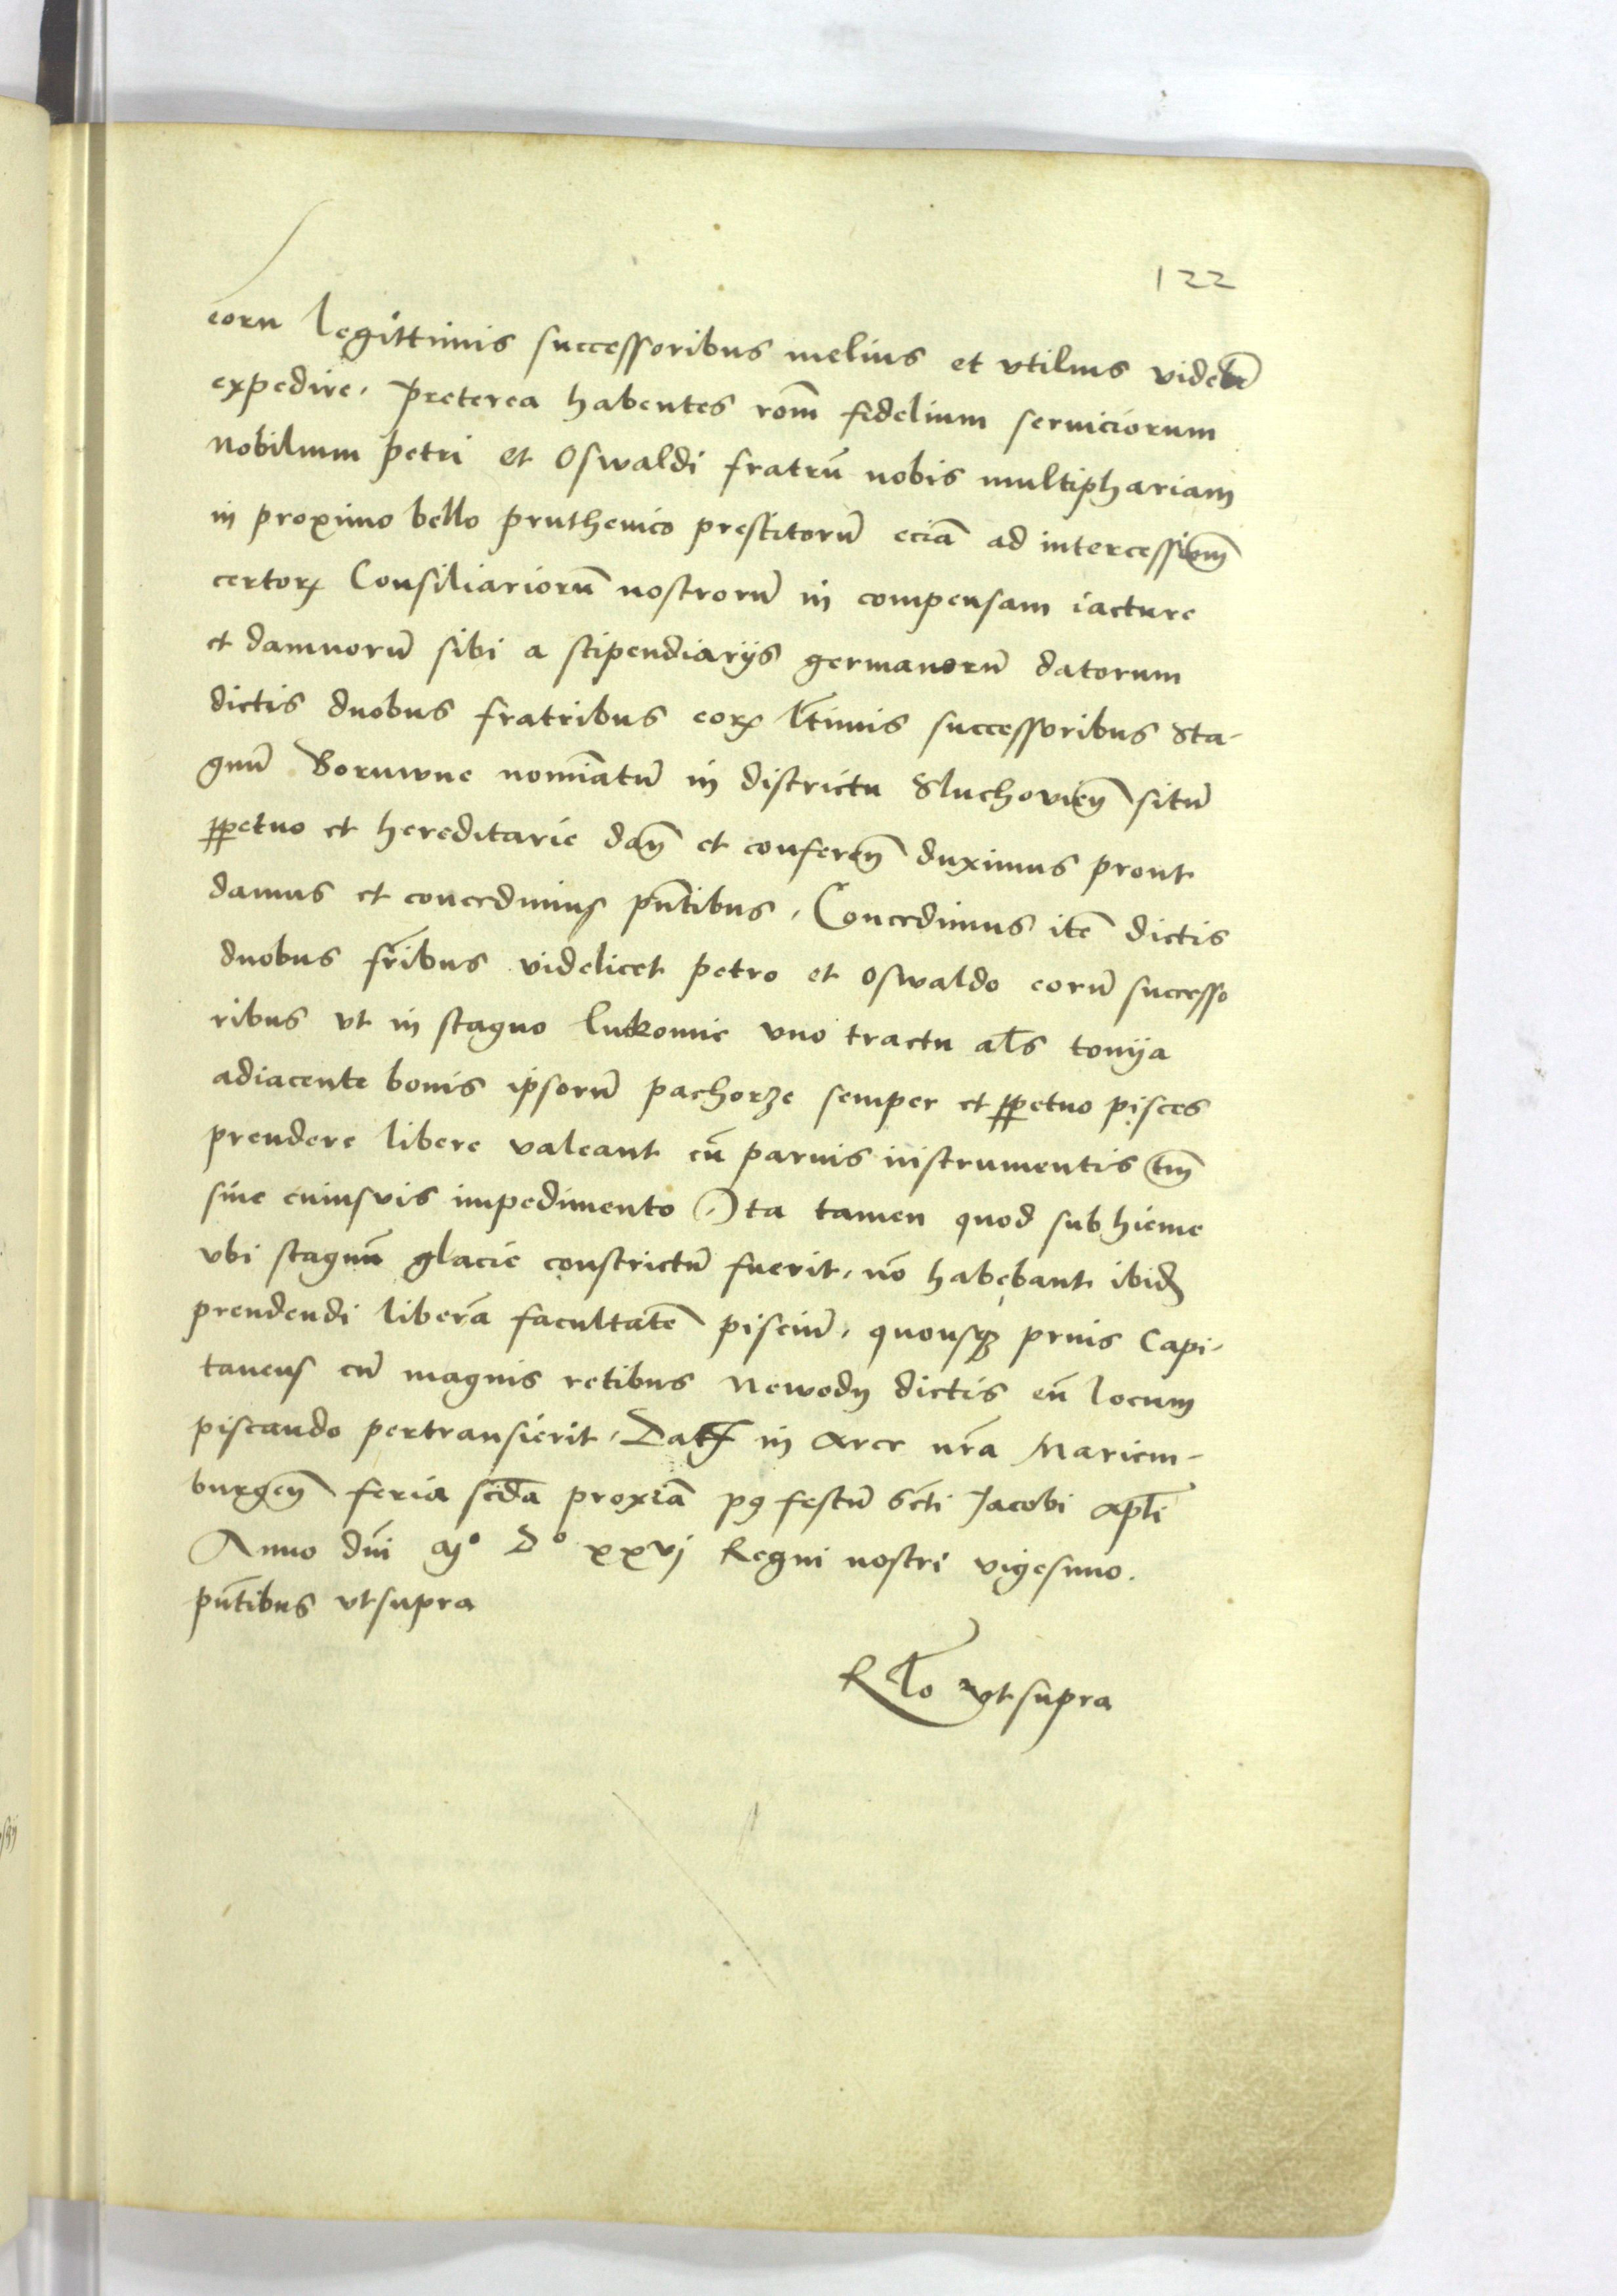 122
eoru legittimis successoribus melius et vtilius videbr̄
expedire. Preterea habentes rōm fidelium seruiciorum
Nobilium Petri et Oswaldi fratrū nobis multiphariam
in proximo bello pruthenico prestitorū eciā ad intercessiom̄
certorꝝ Consiliariorū nostrorū in compensam iacture
et damnorū sibi a stipendiarijs germanorū datorum
dictis duobus fratribus eorꝝ lt̄imis successoribus Sta-
gnū Boruwne nomīatū in districtu Sluchovien̄ sitū
ꝑpetuo et hereditarie dan̄ et conferen̄ duximus prout
damus et concedimus pn̄tibus. Concedimus itē dictis
duobus fr̄ibus videlicet petro et oswaldo eorū successo
ribus vt in stagno lukomie vno tractu al̄s tonija
adiacente bonis ipsorū pachorze semper et ꝑpetuo pisces
prendere libere valeant cū paruis instrumentis tm̄
sine cuiusvis impedimento. Ita tamen quod sub hieme
vbi stagnū glacie constrictū fuerit, nō habebant ibid
prendendi liberā facultatē pisciū, quousqꝫ prius Capi-
taneus cū magnis retibus Newody dictis eū locum
piscando pertransierit. Datt in Arce nr̄a Mariem-
burgen̄ feria scd̄a proxīa pꝯ festū Sc̄ti Jacobi apl̄i
Anno dn̄i Mº Dº xxvj Regni nostri vigesimo.
pn̄tibus vtsupra
Rl̄o vtsupra